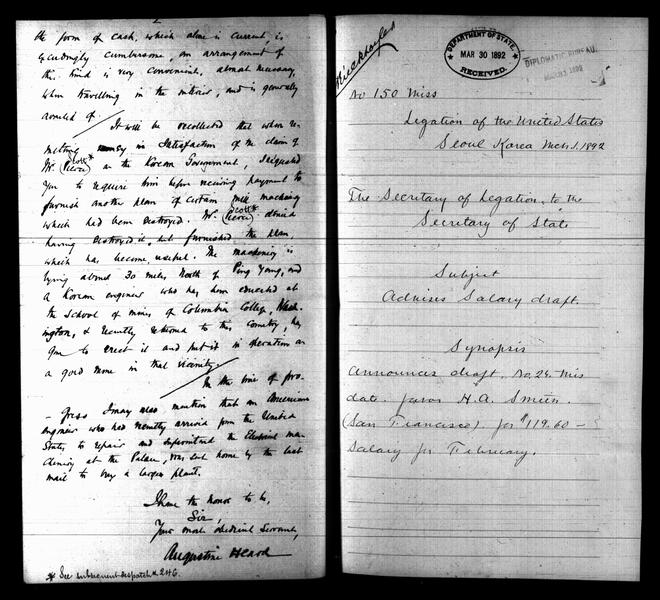 2
the form of cash, which alone is current is
exceedingly cumbersome, an arrangement of
this kind is very convenient, almost necessary,
when travelling in the interior, and is generally
availed of.
It will be recollected that when re-
mitting money in satisfaction of the claim of
Mr. (Pierce) Scott* on the Korean Government, I requested
you to require him before receiving payment to
furnish another plan of certain mill machinery
which had been destroyed. Mr. (Pierce) Scott* denied
having destroyed it, but furnished the plan,
which has become useful. The machinery is
lying about 30 miles North of Ping Yang, and
a Korean engineer who has been educated at
the School of mines of Columbia College, Wash-
ington, & recently returned to this country, has
gone to erect it and put it in operation on
a gold mine in that vicinity.
In the line of pro-
-gress I may also mention that an American
engineer who had recently arrived from the United
States to repair and superintend the Electrical ma-
chinery at the Palace, was sent home by the last
mail to buy a larger plant.
I have the honor to be,
Sir,
Your most obedient servant,
Augustine Heard
* See subsequent despatch # 246.
DEPARTMENT OF STATE.
MAR 30 1892
RECEIVED.
DIPLOMATIC BUREAU.
1892
No 150 Miss
Legation of the United States
Seoul Korea Mch 1, 1892
The Secretary of Legation, to the
Secretary of State
Subject
Advises Salary draft.
Synopsis
Announces draft. No. 24. this
date. favor H. A. Smith.
(San Francisco). for $119.60 -
Salary for February.